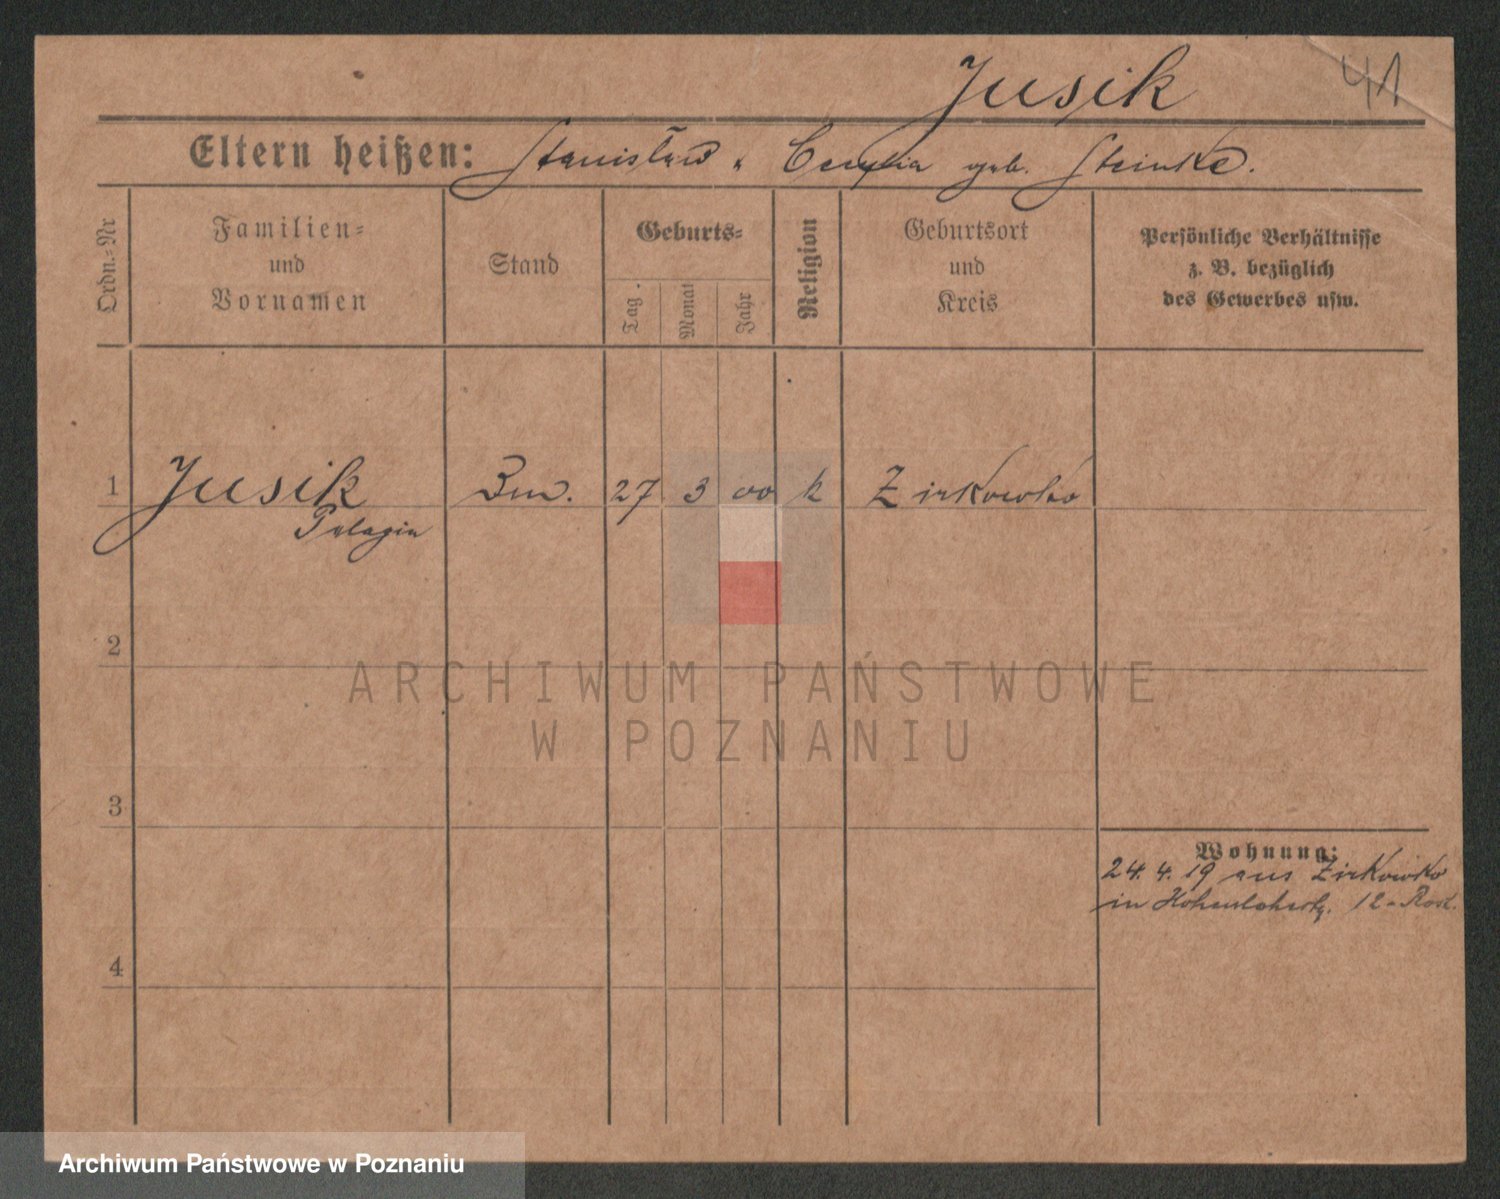 Jusik 41
Eltern heißen: Stanisław u Cecylia geb. Steinke.
Ordn.-Nr
Familien-
und
Vornamen
Stand
Geburts-
Tag.
Monat
Jahr
Religion
Geburtsort
und
Kreis
Persönliche Verhältnisse
z. B. bezüglich
des Gewerbes usw.
1 Jusik 27 3 00 k Zirkowko
Pelagia
2
ARCHIWUM PAŃSTWOWE
W POZNANIU
3
Wohnung:
24. 4. 19 aus Zirkowko
in 12-
4
Archiwum Państwowe w Poznaniu